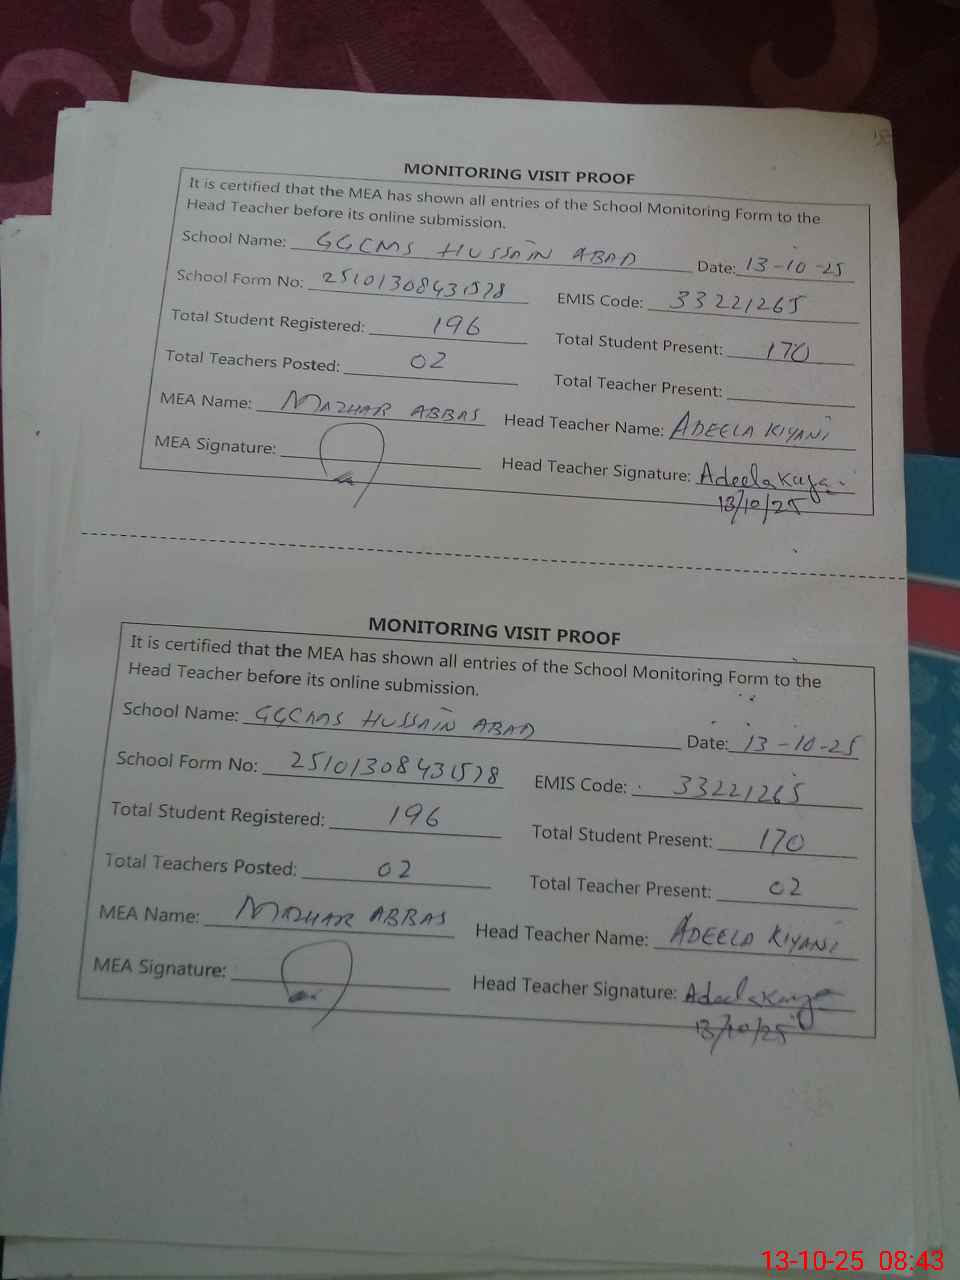 MONITORING VISIT PROOF
It is certified that the MEA has shown all entries of the School Monitoring Form to the
Head Teacher before its online submission.
School Name: GGCMS HUSSAIN ABAD Date: 13-10-25
School Form No: 25101308431578 EMIS Code: 33221265
Total Student Registered: 196 Total Student Present: 170
Total Teachers Posted: 02 Total Teacher Present:
MEA Name: MAZHAR ABBAS Head Teacher Name: ADEELA KIYANI
MEA Signature: Head Teacher Signature: Adeela
13/10/25
MONITORING VISIT PROOF
It is certified that the MEA has shown all entries of the School Monitoring Form to the
Head Teacher before its online submission.
School Name: GGCMS HUSSAIN ABAD Date: 13-10-25
School Form No: 25101308431578 EMIS Code: 33221265
Total Student Registered: 196 Total Student Present: 170
Total Teachers Posted: 02 Total Teacher Present: 02
MEA Name: MAZHAR ABBAS Head Teacher Name: ADEELA KIYANI
MEA Signature: Head Teacher Signature: Adeela
13/10/25
13-10-25 08:43